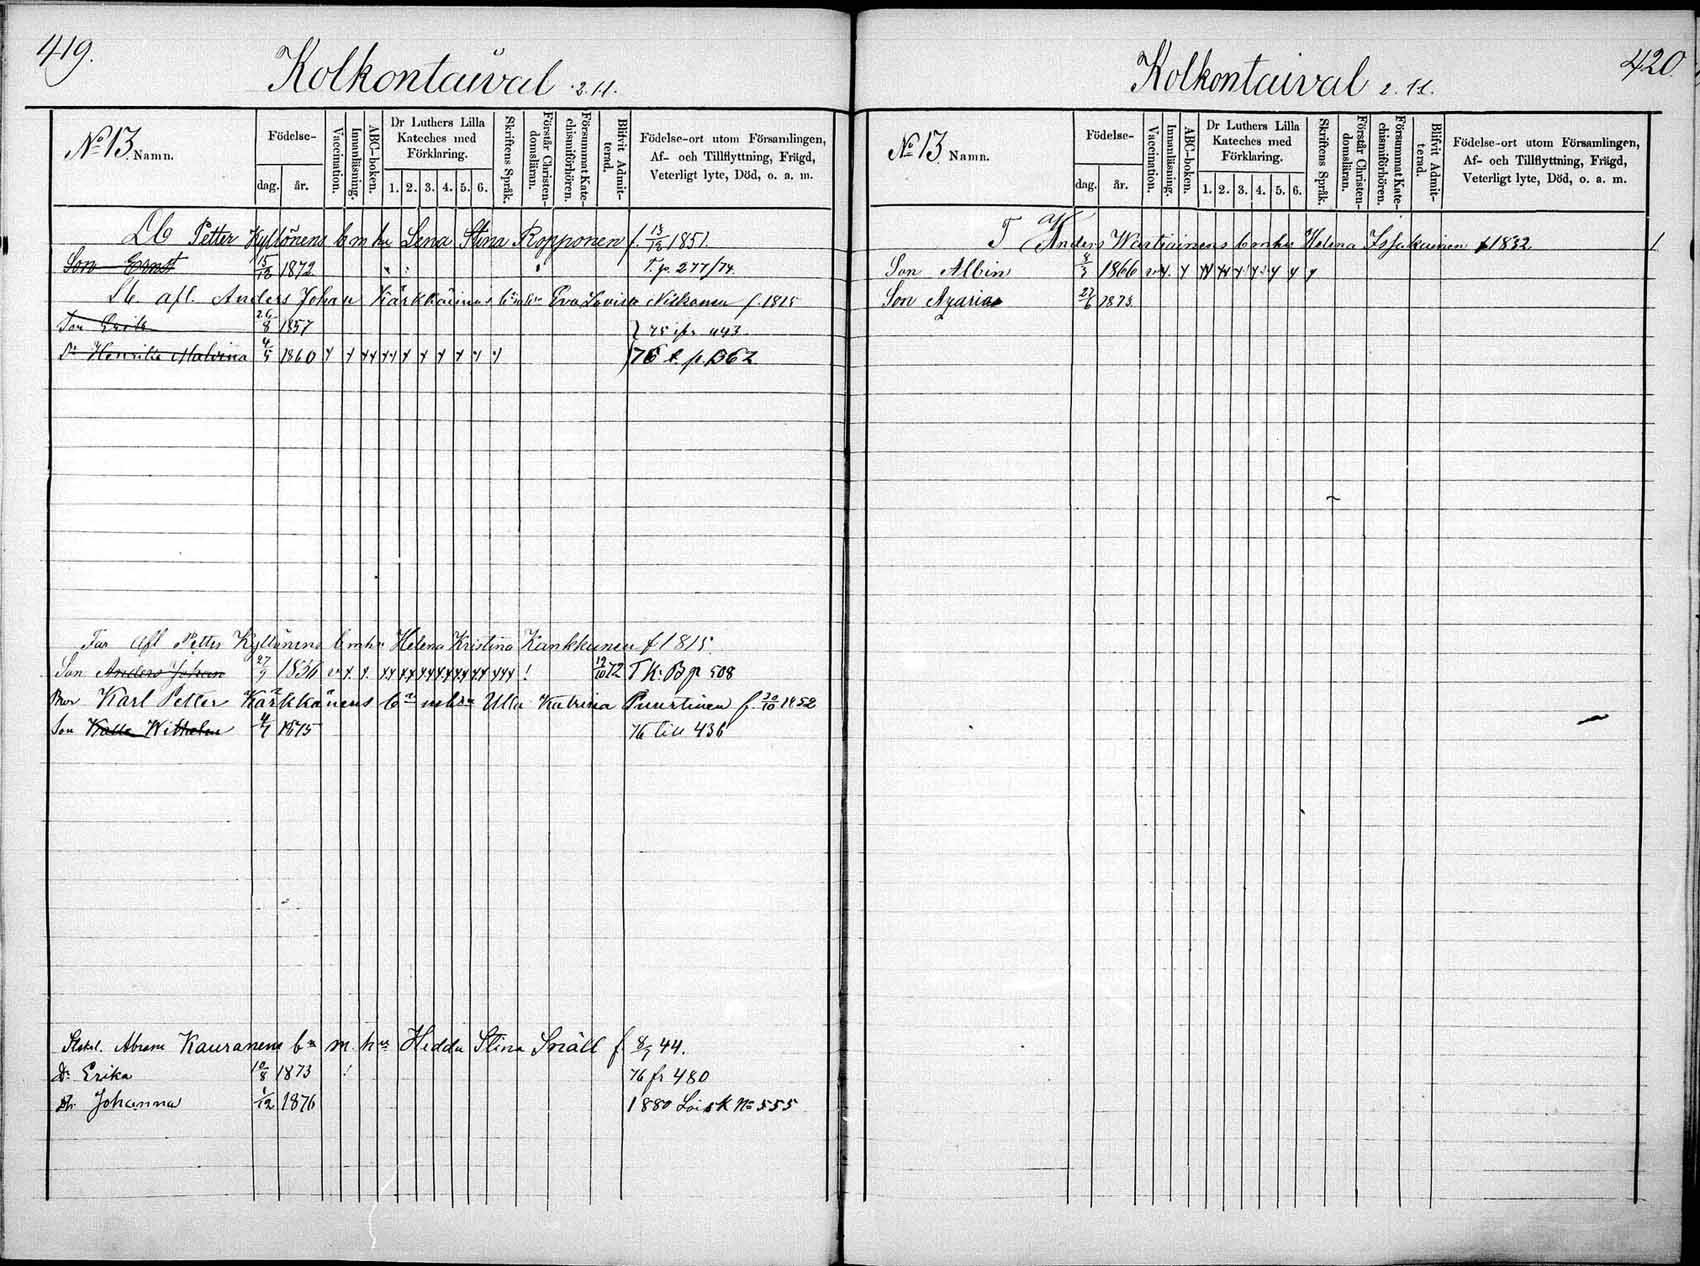 419.
Kolkontaival 2.H.
No 13. Namn.
Födelse- dag. år.
Vaccination.
Innanläsning.
ABC-boken.
Dr Luthers Lilla Kateches med Förklaring.
1. 2. 3. 4. 5. 6.
Skriftens Språk.
Förstår Christen-domsläran.
Försummat Kate-chismiförhören.
Blifvit Admit-terad.
Födelse-ort utom Församlingen,
Af- och Tillflyttning, Frägd,
Veterligt lyte, Död, o. a. m.
Petter Kyllönens b m hu Lena Stina Ropponen f. 13/12 1851.
Son Ernst 15/12 1872 T. p. 277/74.
afl. Anders Johan Kärkkäinens Eva Lovisa Niskanen f. 1815
Son Erik 26/8 1857 75 443
Dr Henrika Malvina 4/5 1860 76 t. p. 362
afl Petter Kyllönens b m hu Helena Kristina Kankkunen f 1815
Son Anders Johan 27/9 1836 ! 19/10 72 T K. B p 508
Karl Petter Kärkkänens Ulla Katrina Puurtinen f. 30/10 1852
Son Kalle Wilhelm 4/7 1875 76 till 436
Abram Kauranens bn m. hu Hedda Stina Snäll f 8/9 44.
Dr Erika 10/8 1873 ! 76 fr 480
Dr Johanna 1/12 1876 1880 No 555
420.
Kolkontaival 2. H.
No 13 Namn.
Födelse- dag. år.
Vaccination.
Innanläsning.
ABC-boken.
Dr Luthers Lilla Kateches med Förklaring.
1. 2. 3. 4. 5. 6.
Skriftens Språk.
Förstår Christen-domsläran.
Försummat Kate-chismiförhören.
Blifvit Admit-terad.
Födelse-ort utom Församlingen,
Af- och Tillflyttning, Frägd,
Veterligt lyte, Död, o. a. m.
T Anders Wartiainens b m hu Helena Issakainen f 1832
Son Albin 8/3 1866
Son Azarias 27/6 1873